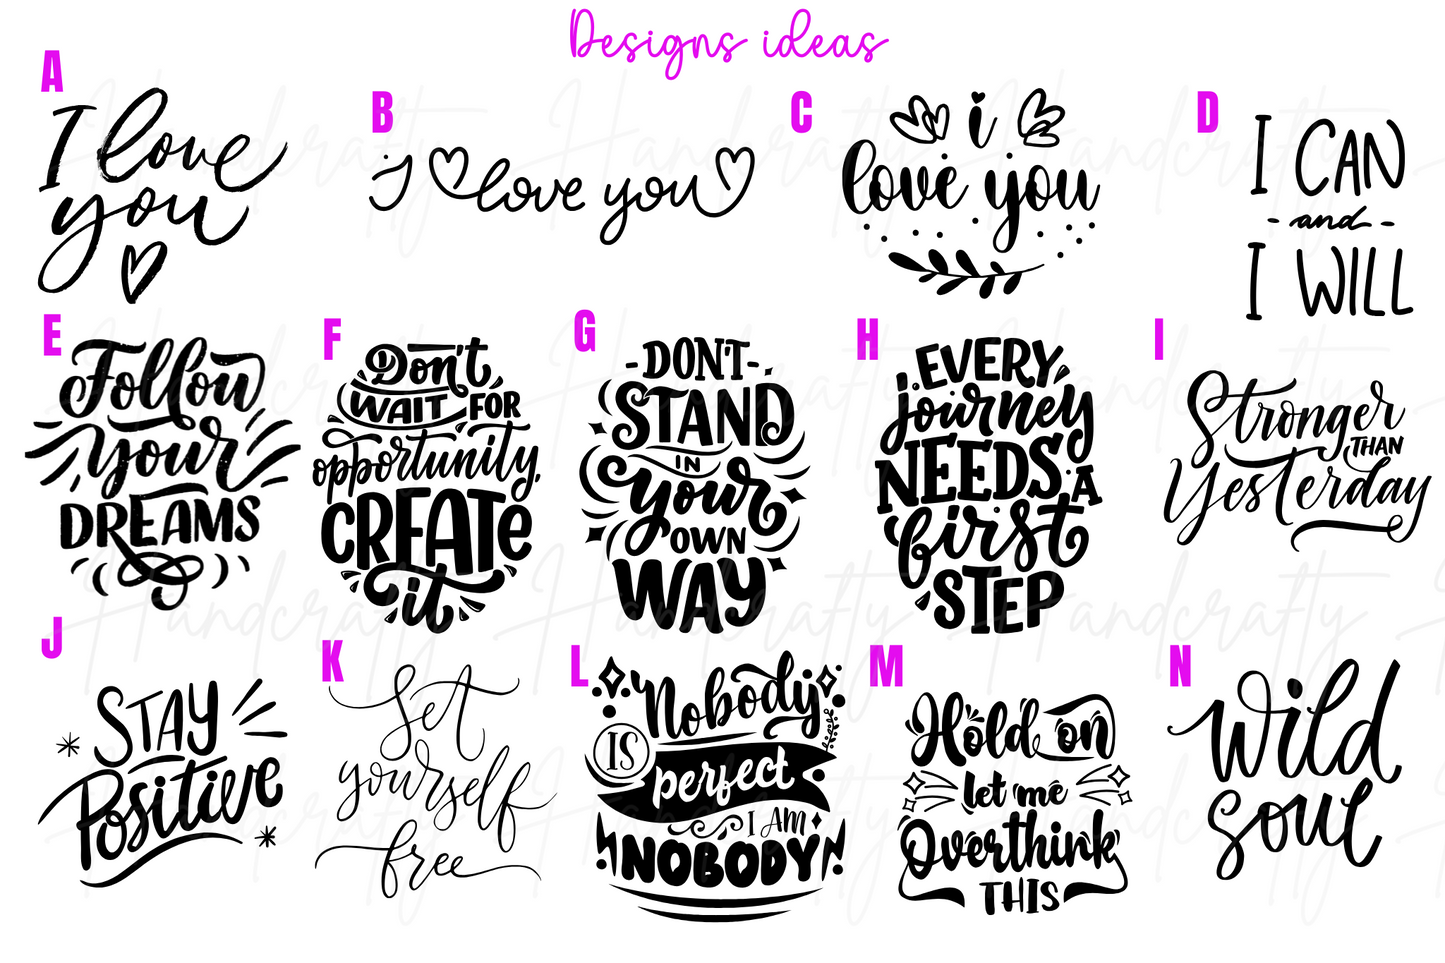 Designs ideas
A
I love
you
B
I love you
C
i
love you
D
I CAN
- and -
I WILL
E
Follow
Your
DREAMS
F
Don't
WAIT FOR
opportunity,
CREATE
it
G
- DON'T -
STAND
IN
your
OWN
WAY
H
EVERY
journey
NEEDS A
first
STEP
I
Stronger
THAN
Yesterday
J
STAY
Positive
K
Set
yourself
free
L
Nobody
IS
perfect
I AM
NOBODY!
M
Hold on
let me
Overthink
THIS
N
wild
soul
Handcrafty